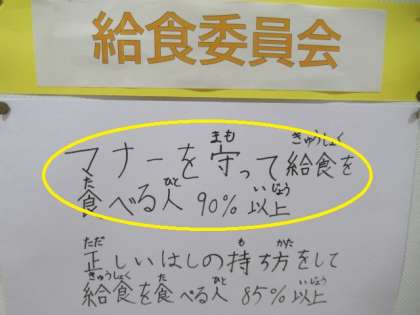 給食委員会
マナーを守って給食を
食べる人 90% 以上
正しいはしの持ち方をして
給食を食べる人 85% 以上